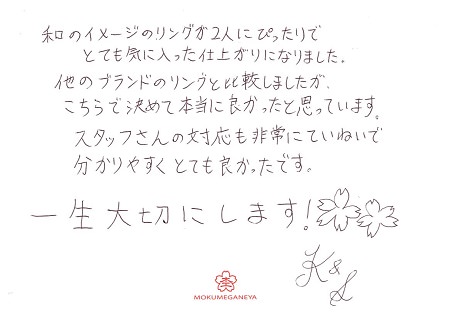 和のイメージのリングが2人にぴったりで
とても気に入った仕上がりになりました.
他のブランドのリングと比較しましたが、
こちらで決めて本当に良かったと思っています。
スタッフさんの対応も非常にていねいで
分かりやすくとても良かったです。
一生大切にします!
K&S
MOKUMEGANEYA